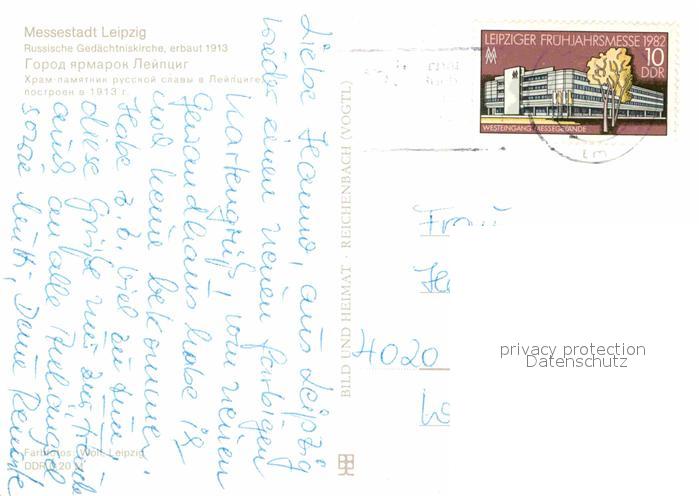 Messestadt Leipzig
Russische Gedächtniskirche, erbaut 1913
Город ярмарок Лейпциг
Храм-памятник русской славы в Лейпциге,
построен в 1913 г.
Liebe Hanno, aus Leipzig
wieder einen neuen farbigen
Kartengruß! vom neuen
Gewandhaus habe ich
noch keine bekommen.
Habe z. B. viel zu tun,
diese Grüße nur zur Freude
auch an alle
sowie Mutti, Deine Renate
Farbfotos: Wolf, Leipzig
DDR 0,20 M
BILD UND HEIMAT · REICHENBACH (VOGTL)
LEIPZIGER FRÜHJAHRSMESSE 1982
10
DDR
WESTEINGANG MESSEGELÄNDE
Frau
4020
privacy protection
Datenschutz